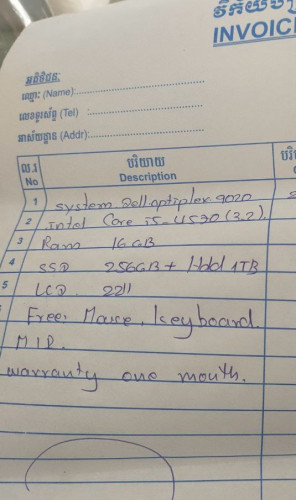 វិក័យប័ត្រ
INVOICE
អតិថិជន:
ឈ្មោះ (Name):
លេខទូរស័ព្ទ (Tel) :
អាស័យដ្ឋាន (Addr):
ល.រ បរិយាយ
No Description
1 System Dell optiplex 9020
2 Intel Core i5-4570 (3.2).
3 Ram 16GB
4 SSD 256GB + Hdd 1TB
5 LCD 2211
Free: Mouse, keyboard.
warranty one month.